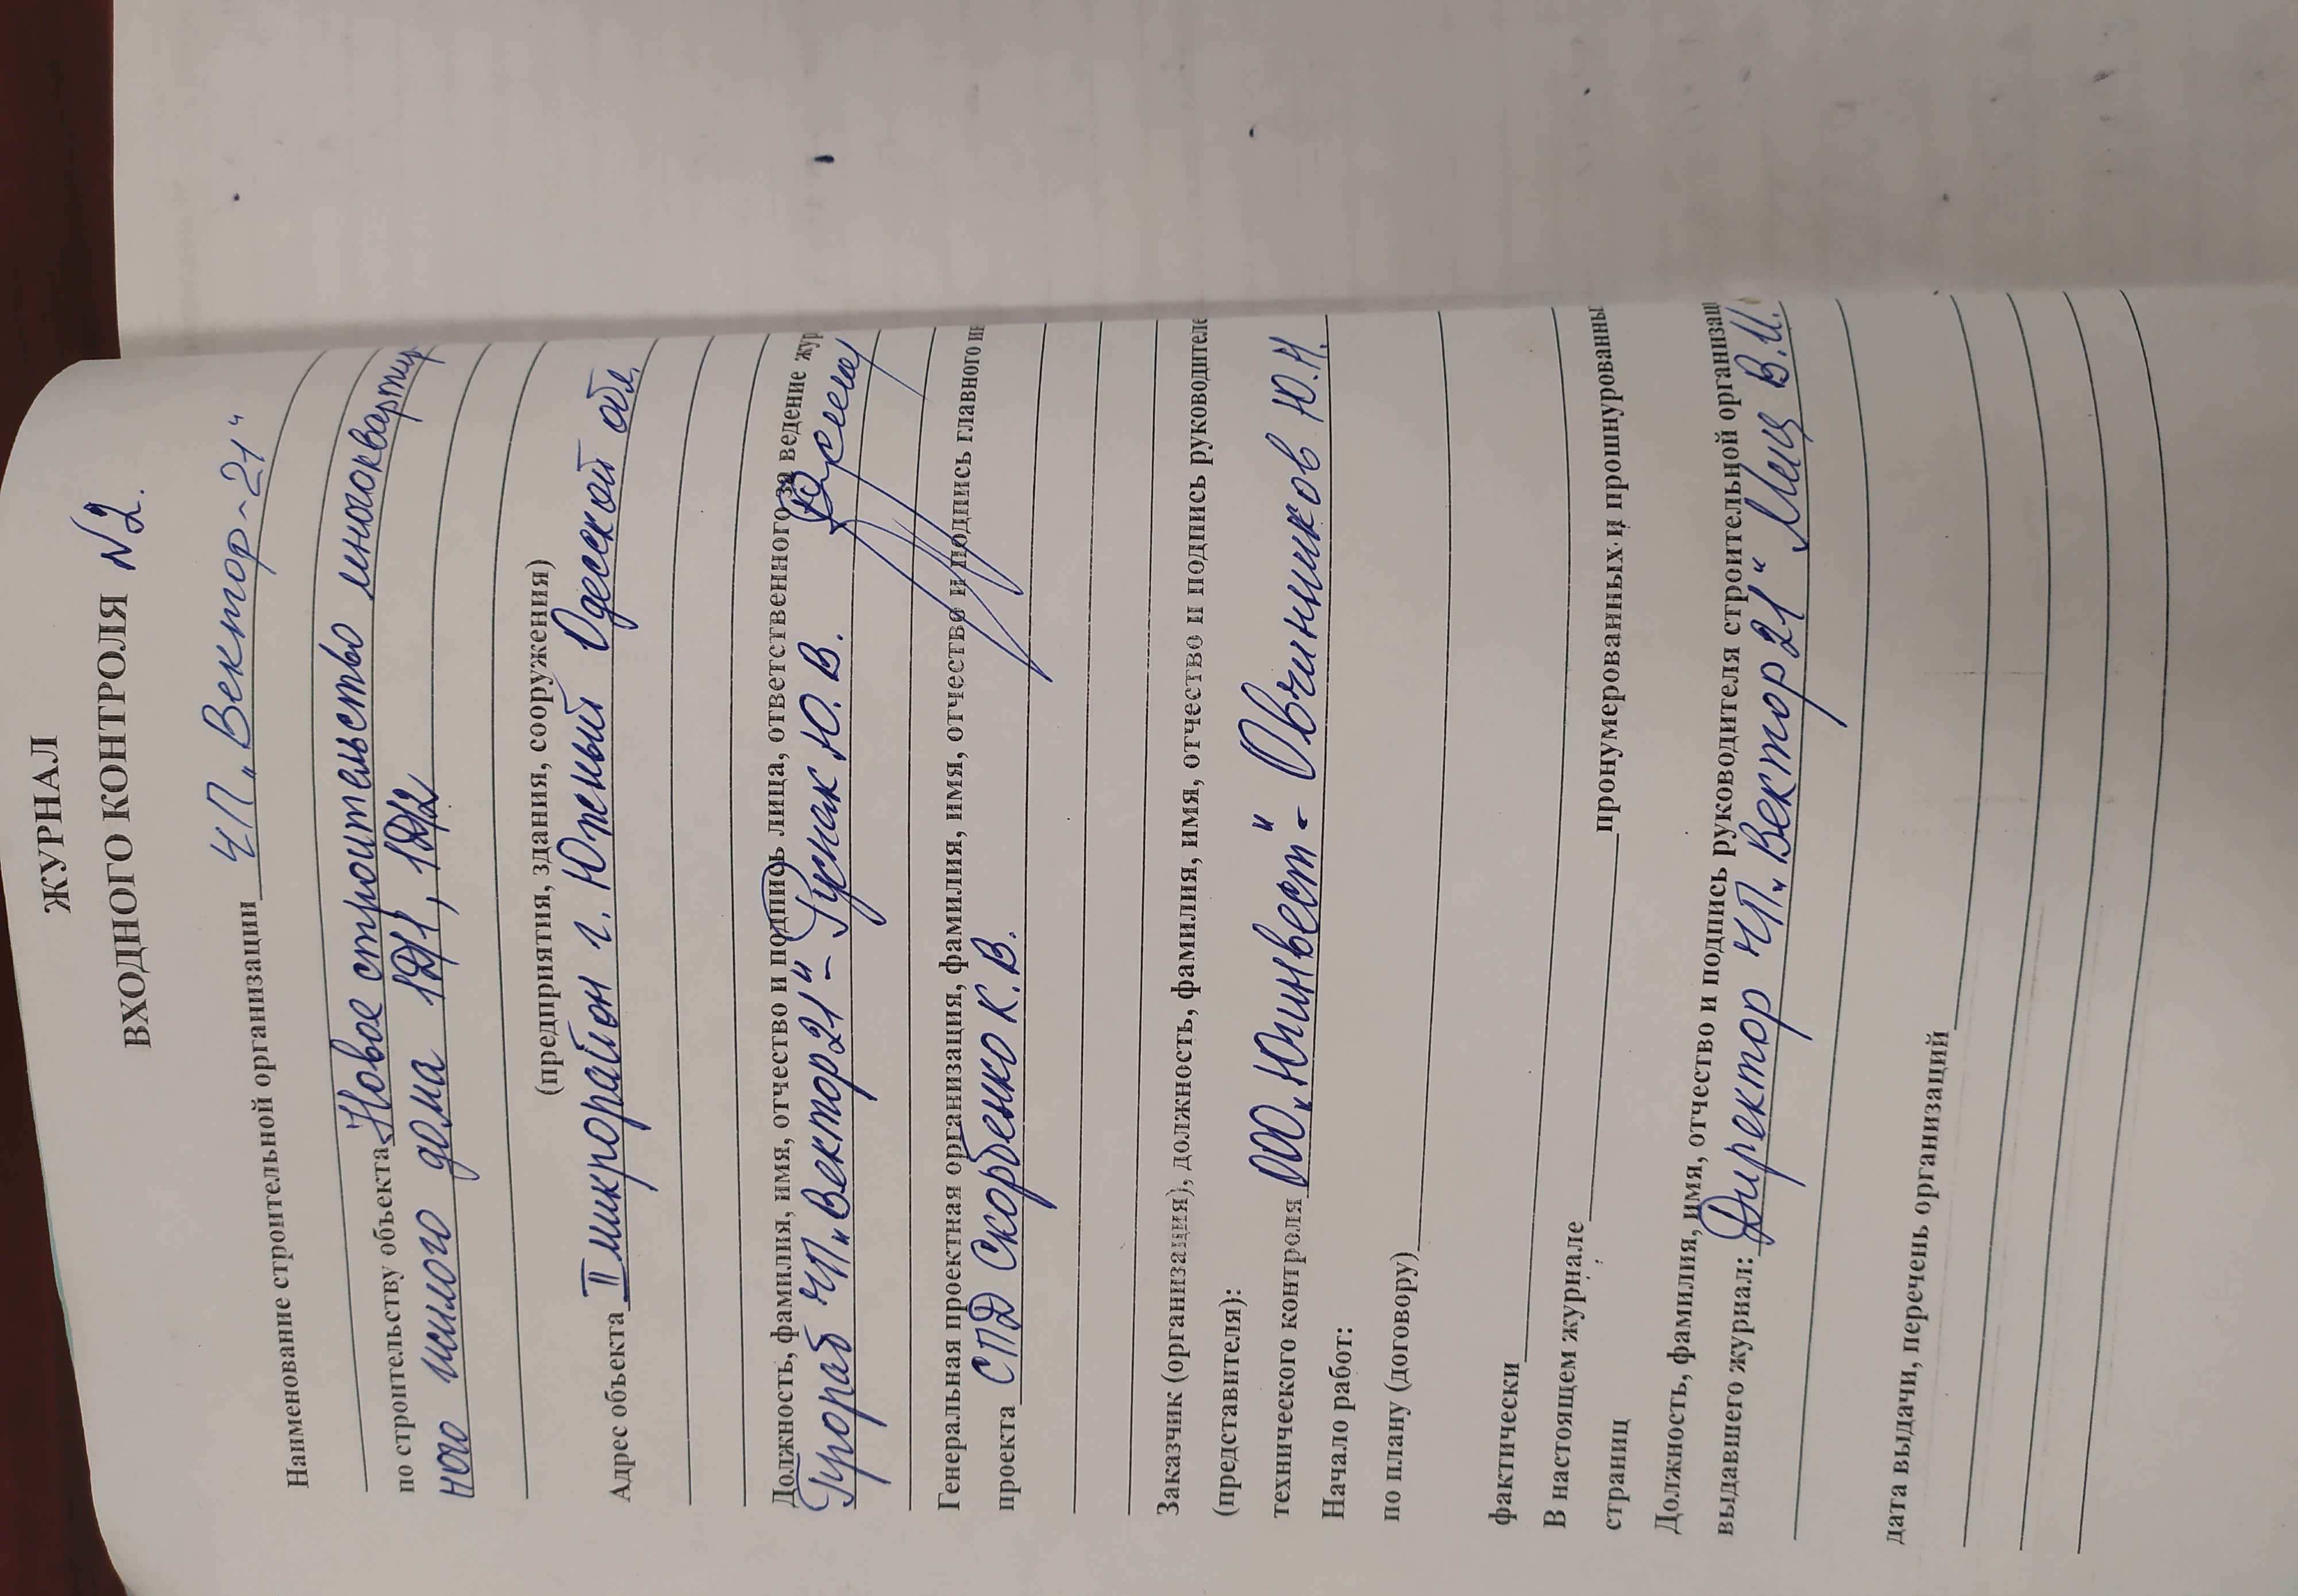 ЖУРНАЛ
ВХОДНОГО КОНТРОЛЯ №2.
Наименование строительной организации ЧП „Вектор-21“
по строительству объекта Новое строительство многоквартир
ного жилого дома
(предприятия, здания, сооружения)
Адрес объекта II микрорайон г. Южный Одесской обл.
Должность, фамилия, имя, отчество и подпись лица, ответственного за ведение жур
Прораб ЧП „Вектор 21“ – Гуснак Ю.В.
Генеральная проектная организация, фамилия, имя, отчество и подпись главного ин
проекта СПД Скорбенко К.В.
Заказчик (организация), должность, фамилия, имя, отчество и подпись руководителя
(представителя):
технического контроля ООО „Югинвест“ - Овчинников Ю.Н.
Начало работ:
по плану (договору)
фактически
В настоящем журнале пронумерованных и прошнурованны
страниц
Должность, фамилия, имя, отчество и подпись руководителя строительной организац
выдавшего журнал: Директор ЧП „Вектор 21“ Лиц В.И.
дата выдачи, перечень организаций